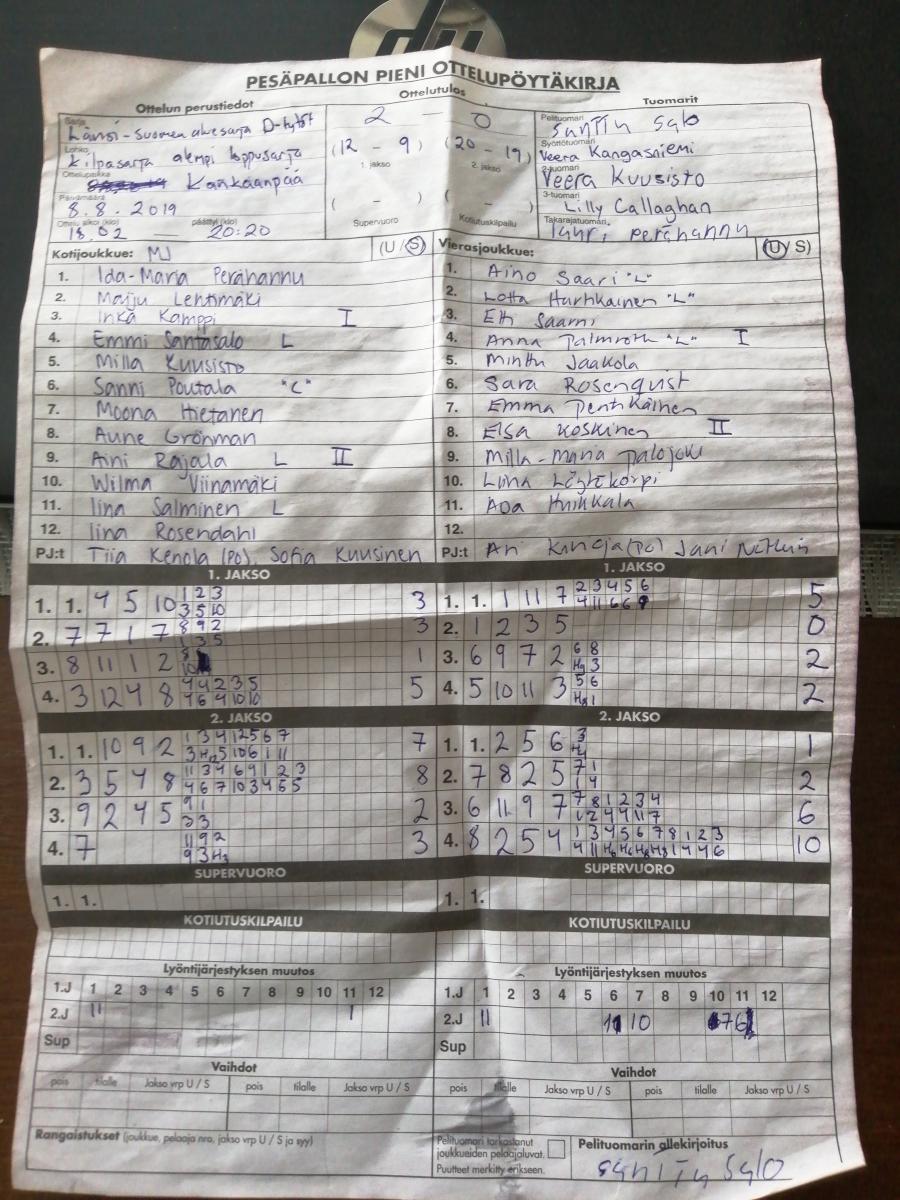 PESÄPALLON PIENI OTTELUPÖYTÄKIRJA
Ottelun perustiedot
Ottelutulos
Tuomarit
Sarja
Länsi-Suomen aluesarja D-tytöt
Lohko
Kilpasarja alempi loppusarja
Ottelupaikka
Kankaanpää
Päivämäärä
8.8.2019
Ottelu alkoi (klo) päättyi (klo)
18.02 20:20
2 - 0
(12 - 9) (20 - 19)
1. jakso 2. jakso
( - ) ( - )
Supervuoro Kotiutuskilpailu
Pelituomari
Santtu Salo
Syöttötuomari
Veera Kangasniemi
2-tuomari
Veera Kuusisto
3-tuomari
Lilly Callaghan
Takarajatuomari
Lauri Perähannu
Kotijoukkue: MJ (U / S)
1. Ida-Maria Perähannu
2. Maiju Lehtimäki
3. Inka Kamppi I
4. Emmi Santasalo L
5. Milla Kuusisto
6. Sanni Poutala "C"
7. Moona Hietanen
8. Aune Grönman
9. Aini Rajala L II
10. Wilma Viinamäki
11. Iina Salminen L
12. Iina Rosendahl
PJ:t Tiia Kenola (PO), Sofia Kuusinen
Vierasjoukkue: (U / S)
1. Aino Saari "L"
2. Lotta Huhkainen "L"
3. Elli Saarni
4. Anna Palmroth "L" I
5. Minttu Jaakola
6. Sara Rosenqvist
7. Emma Penttikäinen
8. Elsa Koskinen II
9. Milla-Maria Palojoki
10. Liina Löytökorpi
11. Ada Huikkala
12.
PJ:t Ari (PO) Jani
1. JAKSO
1. 1. 4 5 10 1 2 3 3
3 5 10
2. 7 7 1 7 8 9 2 3
1 3 5
3. 8 11 1 2 8 1
10
4. 3 12 4 8 4 4 2 3 5 5
4 6 4 10 10
2. JAKSO
1. 1. 10 9 2 1 3 4 12 5 6 7 7
3 H12 5 10 6 1 11
2. 3 5 4 8 11 3 4 6 9 1 2 3 8
4 6 7 10 3 4 6 5
3. 9 2 4 5 9 1 2
3 3
4. 7 11 9 2 3
9 3 H3
SUPERVUORO
1. 1.
KOTIUTUSKILPAILU
1. JAKSO
1. 1. 1 11 7 2 3 4 5 6 5
4 11 6 6 9
2. 1 2 3 5 0
3. 6 9 7 2 6 8 2
H9 3
4. 5 10 11 3 5 6 2
H8 1
2. JAKSO
1. 1. 2 5 6 3 1
H4
2. 7 8 2 5 7 1 2
1 4
3. 6 11 9 7 7 8 1 2 3 4 6
1 2 4 4 11 7
4. 8 2 5 4 1 3 4 5 6 7 8 1 2 3 10
4 11 H6 H6 H8 H8 1 4 4 6
SUPERVUORO
1. 1.
KOTIUTUSKILPAILU
Lyöntijärjestyksen muutos
1.J 1 2 3 4 5 6 7 8 9 10 11 12
2.J 11 1
Sup
Vaihdot
pois tilalle Jakso vrp U / S pois tilalle Jakso vrp U / S
Rangaistukset (joukkue, pelaaja nro, jakso vrp U / S ja syy)
Lyöntijärjestyksen muutos
1.J 1 2 3 4 5 6 7 8 9 10 11 12
2.J 11 10 7 6
Sup
Vaihdot
pois tilalle Jakso vrp U / S pois tilalle Jakso vrp U / S
Pelituomari tarkastanut
joukkueiden pelaajaluvat.
Puutteet merkitty erikseen.
Pelituomarin allekirjoitus
Santtu Salo